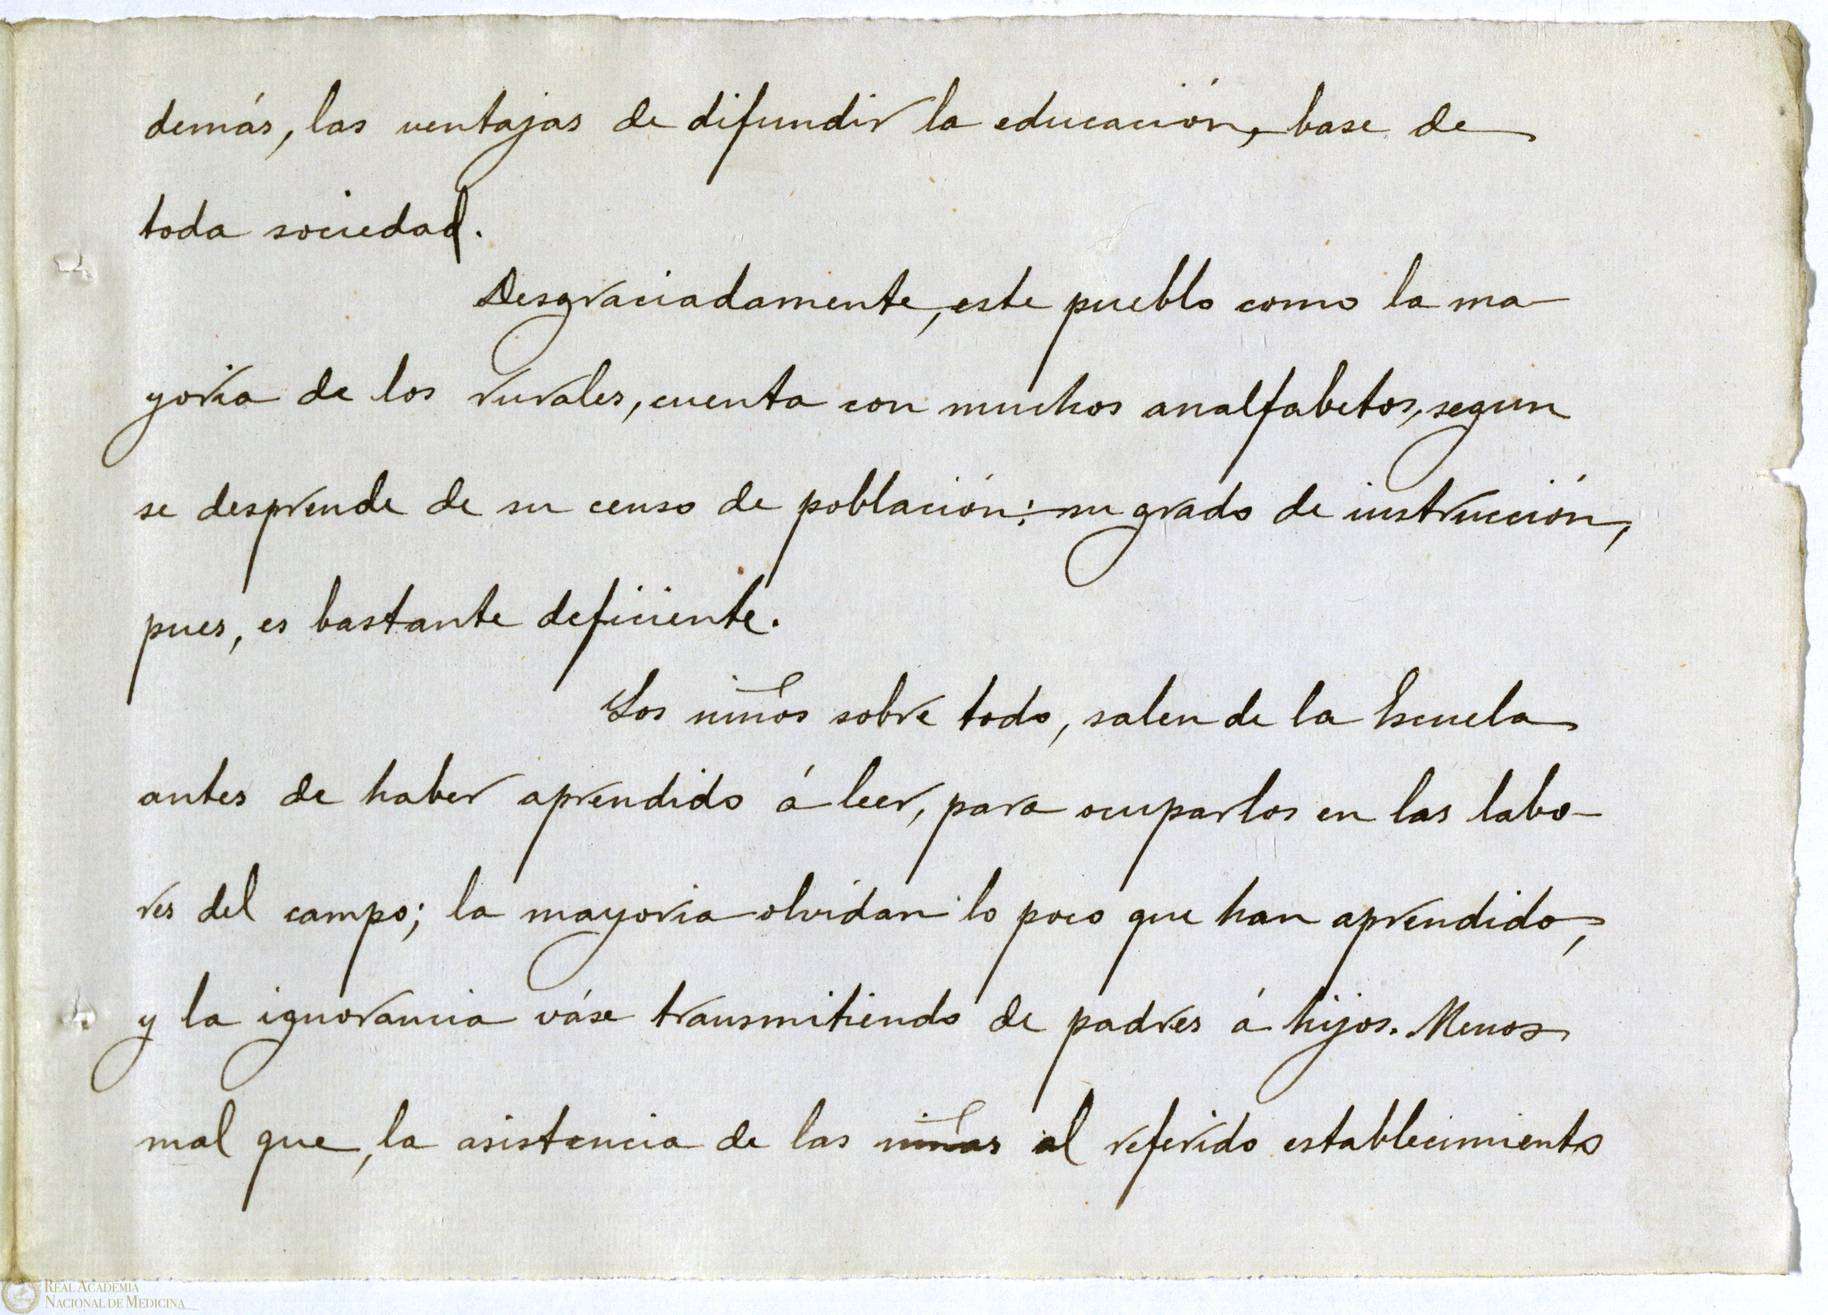 demás, las ventajas de difundir la educación, base de
toda sociedad.
Desgraciadamente, este pueblo como la ma-
yoria de los rurales, cuenta con muchos analfabetos, segun
se desprende de su censo de población: su grado de instrucción,
pues, es bastante deficiente.
Los niños sobre todo, salen de la Escuela
antes de haber aprendido á leer, para ocuparlos en las labo-
res del campo; la mayoria olvidan lo poco que han aprendido,
y la ignorancia váse transmitiendo de padres á hijos. Menos
mal que, la asistencia de las niñas al referido establecimiento
REAL ACADEMIA
NACIONAL DE MEDICINA